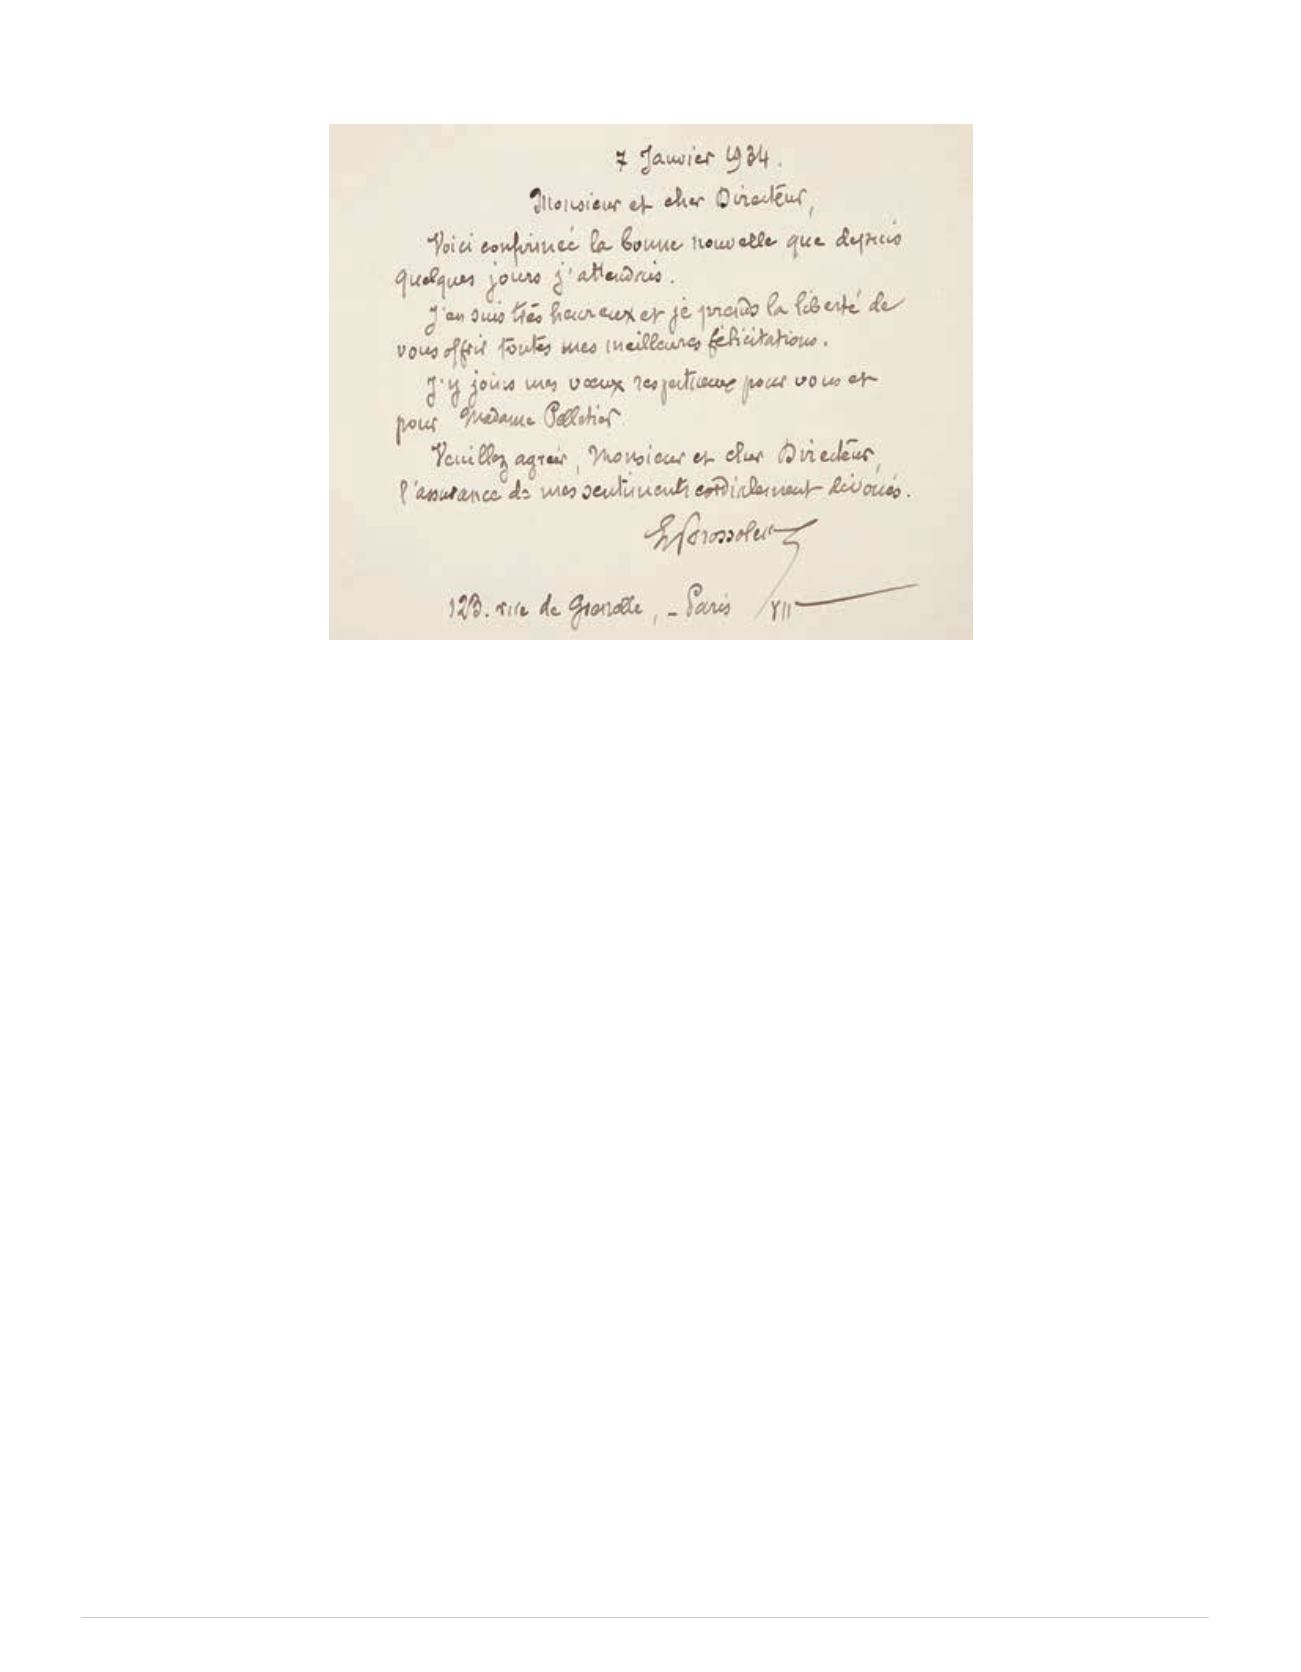 7 Janvier 1934.
Monsieur et cher Directeur,
Voici confirmée la bonne nouvelle que depuis
quelques jours j'attendais.
J'en suis très heureux et je prends la liberté de
vous offrir toutes mes meilleures félicitations.
J'y joins mes vœux respectueux pour vous et
pour Madame Pelletier.
Veuillez agréer, Monsieur et cher Directeur,
l'assurance de mes sentiments cordialement dévoués.
123. rue de Grenelle, - Paris VII